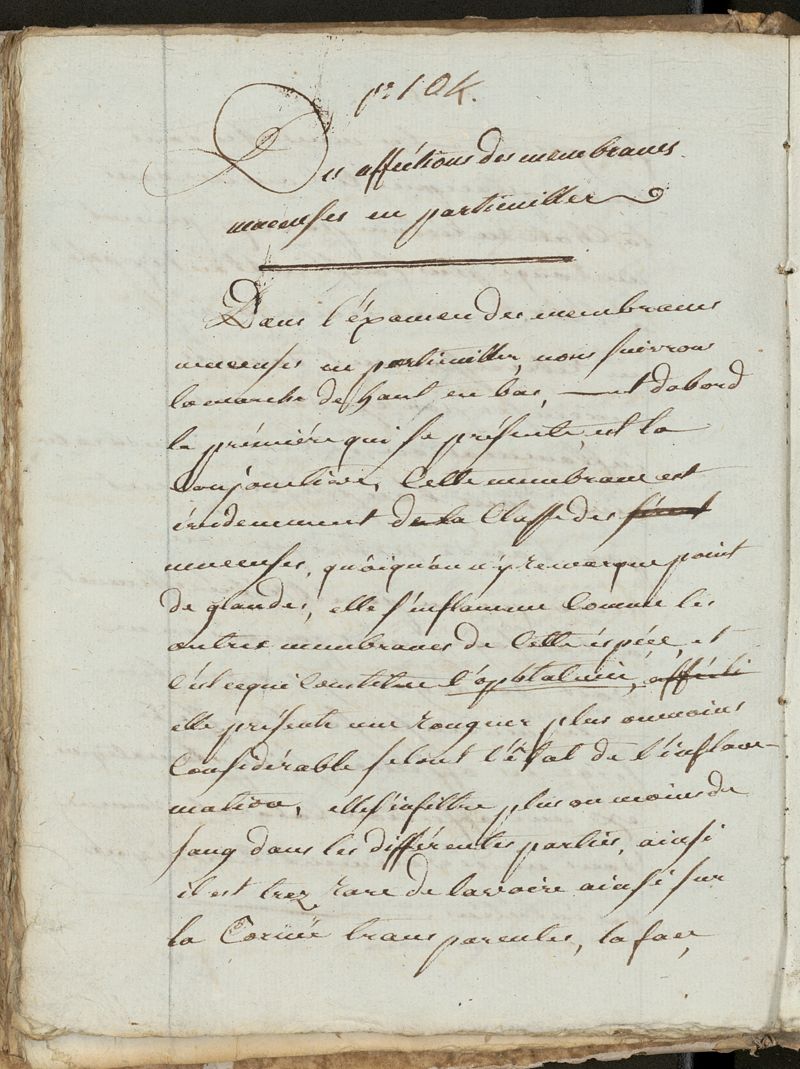 pr 104.
Des afféctions des membranes
muceuses en particuillier
Dans l'éxamen des membranes
muceuses en particuillier, nous suivrons
la marche de haut en bas, et dabord
la prémière qui se présente, est la
Conjonctive, Cette membrane est
évidemment de la Classe des
muceuses, quòiqu'on n'y remarque point
de glandes, elle s'inflamme Comme les
autres membranes de Cette éspéce, et
C'est ce qui Constitue l'ophtalmie, affécti
elle présente une rougeur plus ou moins
Considérable selont l'état de l'inflam-
mation, elle s'infiltre plus ou moins de
sang dans les différentes parties, ainsi
il est trez rare de la voire ainsi sur
la Cornée transparentes, la face,